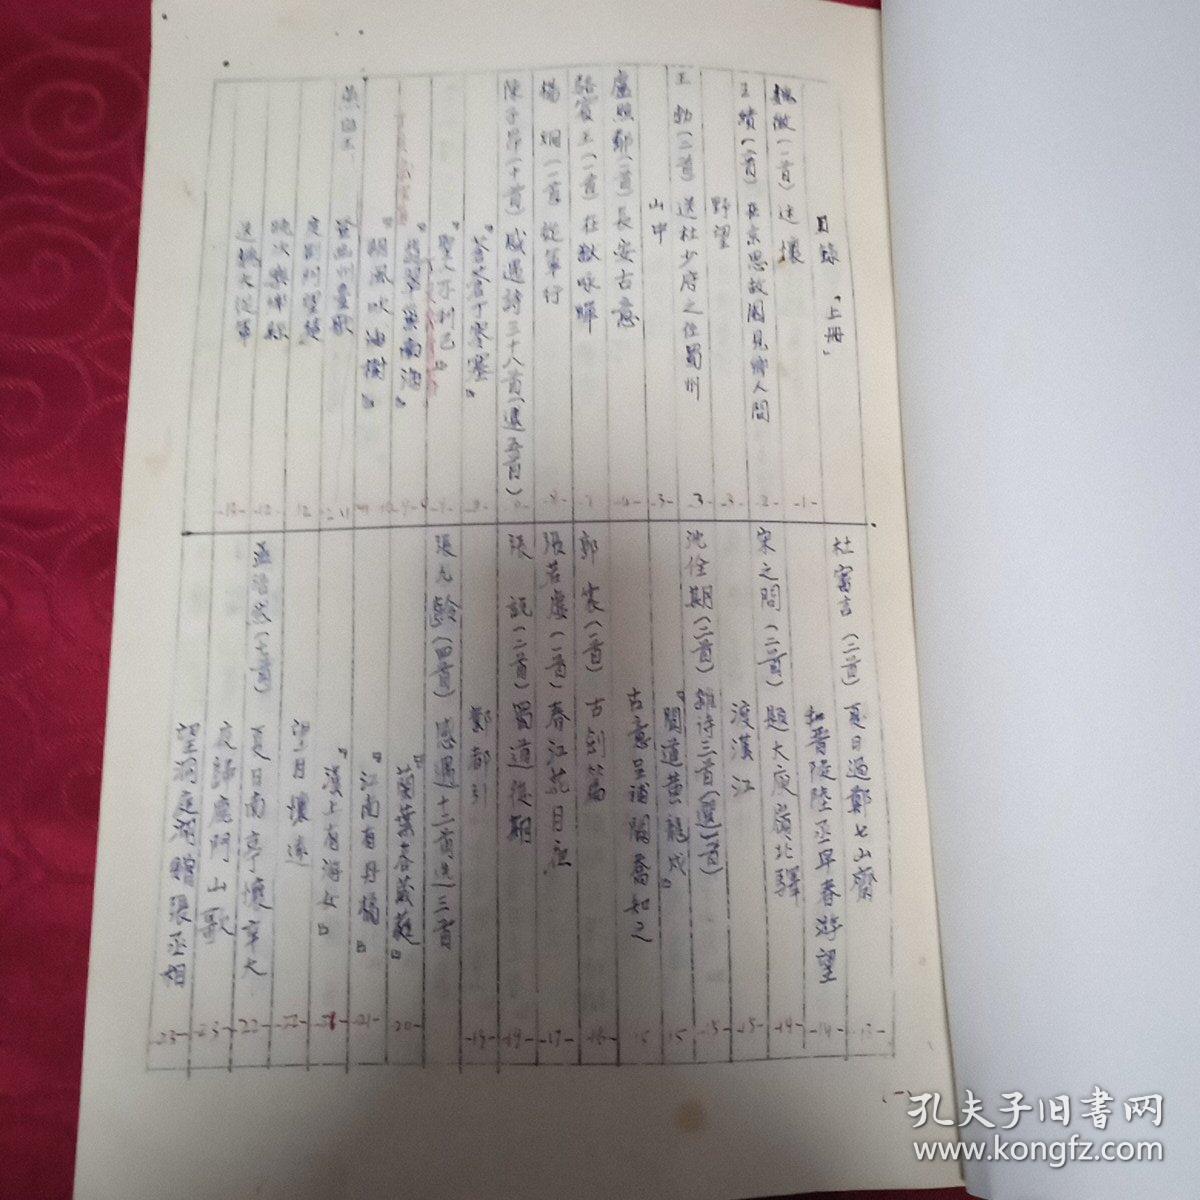 目錄「上冊」
魏徵(一首)述懷 -1-
王績(二首)在京思故園見鄉人問 -2-
野望 -3-
王勃(二首)送杜少府之任蜀州 -3-
山中 -3-
盧照鄰(一首)長安古意 -4-
駱賓王(一首)在獄咏蟬 -7-
楊炯(一首)從軍行 -8-
陳子昂(十首)感遇詩三十八首(選五首)
『蒼蒼丁零塞』
『聖人不利己』
『翡翠巢南海』
『朔風吹海樹』
燕昭王
登幽州臺歌
度荊門望楚
晚次樂鄉縣
送魏大從軍
杜審言(二首)夏日過鄭七山齋 -13-
和晉陵陸丞早春游望 -14-
宋之問(二首)題大庾嶺北驛 -14-
渡漢江 -15-
沈佺期(二首)雜詩三首(選一首) -15-
『聞道黃龍戍』 15
古意呈補闕喬知之
郭震(一首)古劍篇 -16-
張若虛(一首)春江花月夜 -17-
張說(二首)蜀道後期 -19-
鄴都引 -19-
張九齡(四首)感遇十二首选三首
『蘭葉春葳蕤』 -20-
『江南有丹橘』 -21-
『漢上有游女』
望月懷遠 -22-
孟浩然 夏日南亭懷辛大 22-
夜歸鹿門山歌 -23-
望洞庭湖贈張丞相 -23-
(一)
孔夫子旧书网
www.kongfz.com